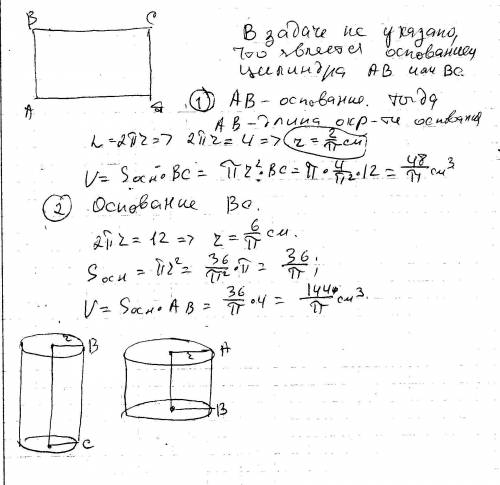 B C
A
В задаче не указано,
что является основанием
цилиндра AB или BC.
① AB - основание. Тогда
AB - длина окр-ти основания
L = 2πr => 2πr = 4 => r = 2/π см
V = Sосн · BC = πr² · BC = π · 4/π² · 12 = 48/π см³
② Основание BC.
2πr = 12 => r = 6/π см.
Sосн = πr² = 36/π² · π = 36/π ;
V = Sосн · AB = 36/π · 4 = 144/π см³.
r B r A
B
C